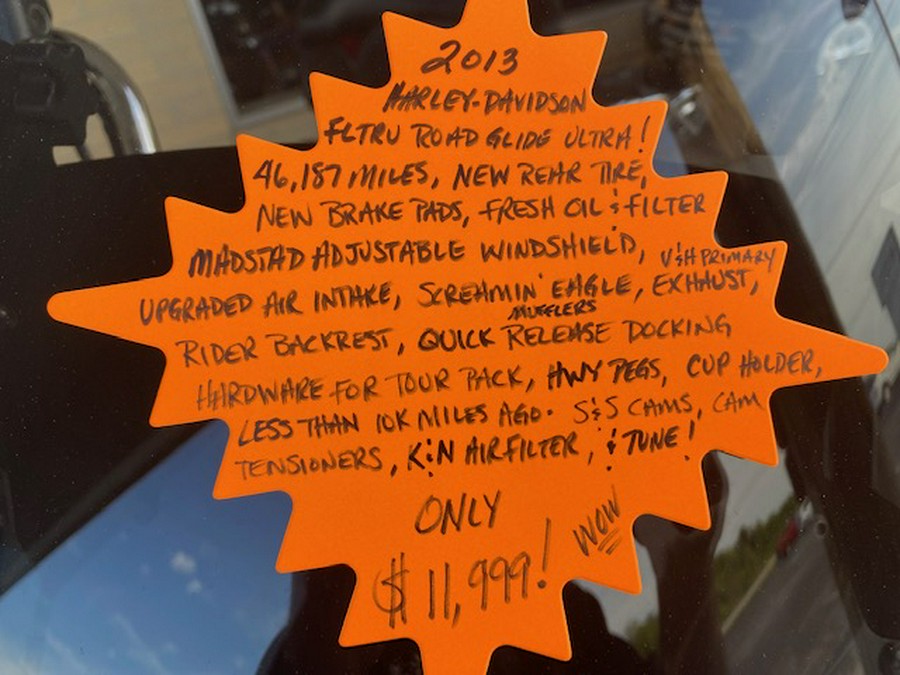 2013
HARLEY-DAVIDSON
FLTRU ROAD GLIDE ULTRA!
46,187 MILES, NEW REAR TIRE,
NEW BRAKE PADS, FRESH OIL & FILTER
MADSTAD ADJUSTABLE WINDSHIELD, V&H PRIMARY
UPGRADED AIR INTAKE, SCREAMIN' EAGLE, EXHAUST,
MUFFLERS
RIDER BACKREST, QUICK RELEASE DOCKING
HARDWARE FOR TOUR PACK, HWY PEGS, CUP HOLDER,
LESS THAN 10K MILES AGO. S&S CAMS, CAM
TENSIONERS, K&N AIRFILTER, & TUNE!
ONLY
$11,999! WOW